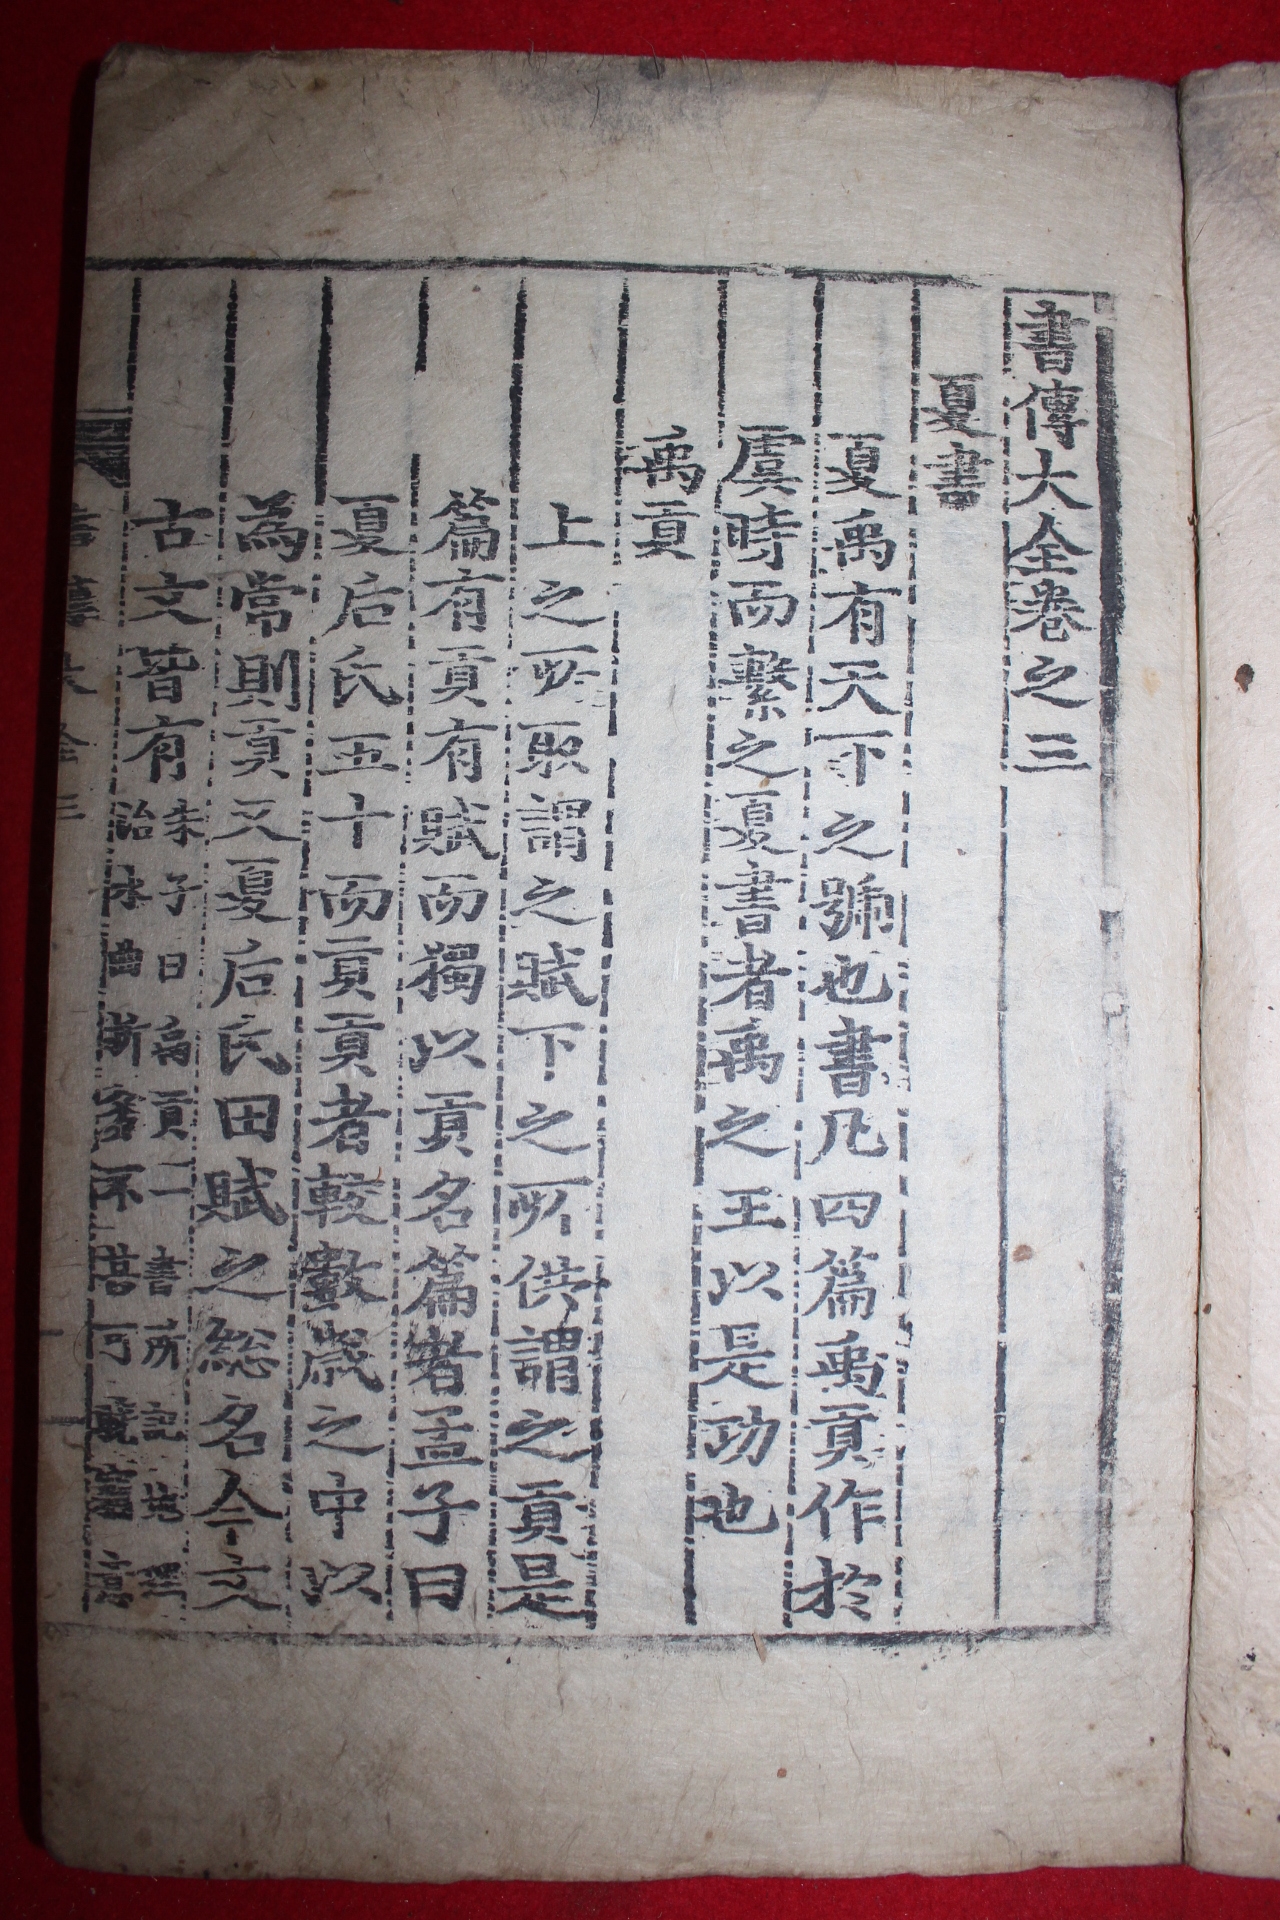 書傳大全卷之三
夏書
夏禹有天下之號也書凡四篇禹貢作於
虞時而繫之夏書者禹之王以是功也
禹貢
上之所取謂之賦下之所供謂之貢是
篇有貢有賦而獨以貢名篇者孟子曰
夏后氏五十而貢貢者較數歲之中以
為常則貢又夏后氏田賦之総名今文
古文皆有
朱子曰禹貢一書所記地理
治水曲折多不甚可曉竊意
書傳大全三